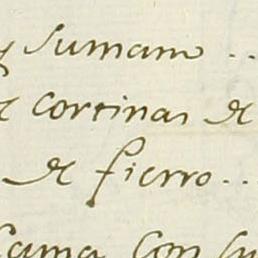 y Sumam ..
de cortinas de
de fierro..
cama con su